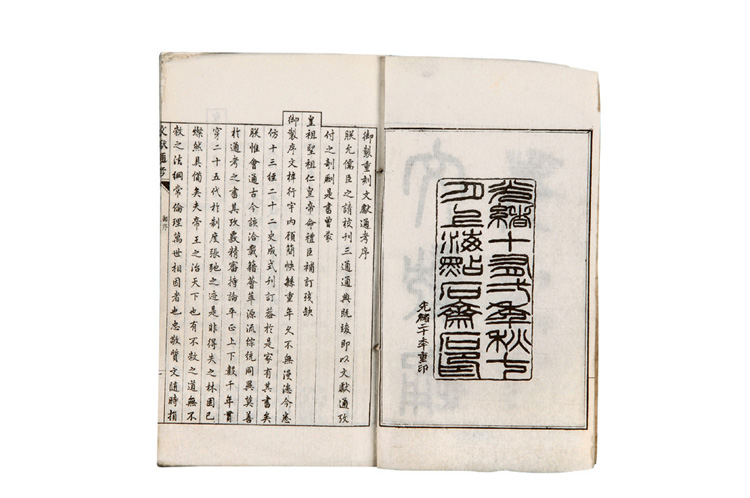 光緒十有弍年秋七
月上海點石齋石印
光緒二十年重印
御製重刻文獻通考序
朕允儒臣之請校刊三通通典既竣即以文獻通攷
付之剞劂是書曾蒙
皇祖聖祖仁皇帝命禮臣補訂殘缺
御製序文梓行宇內顧簡帙緐重年久不無漫漶今悉
仿十三經二十二史成式刊訂蕆於是家有其書矣
朕惟會通古今該洽載籍薈萃源流綜統同異莫善
於通考之書其攷覈精審持論平正上下數千年貫
穿二十五代於制度張弛之迹是非得失之林固已
燦然具備矣夫帝王之治天下也有不敝之道無不
敝之法綱常倫理萬世相因者也忠敬質文隨時損
文獻通考